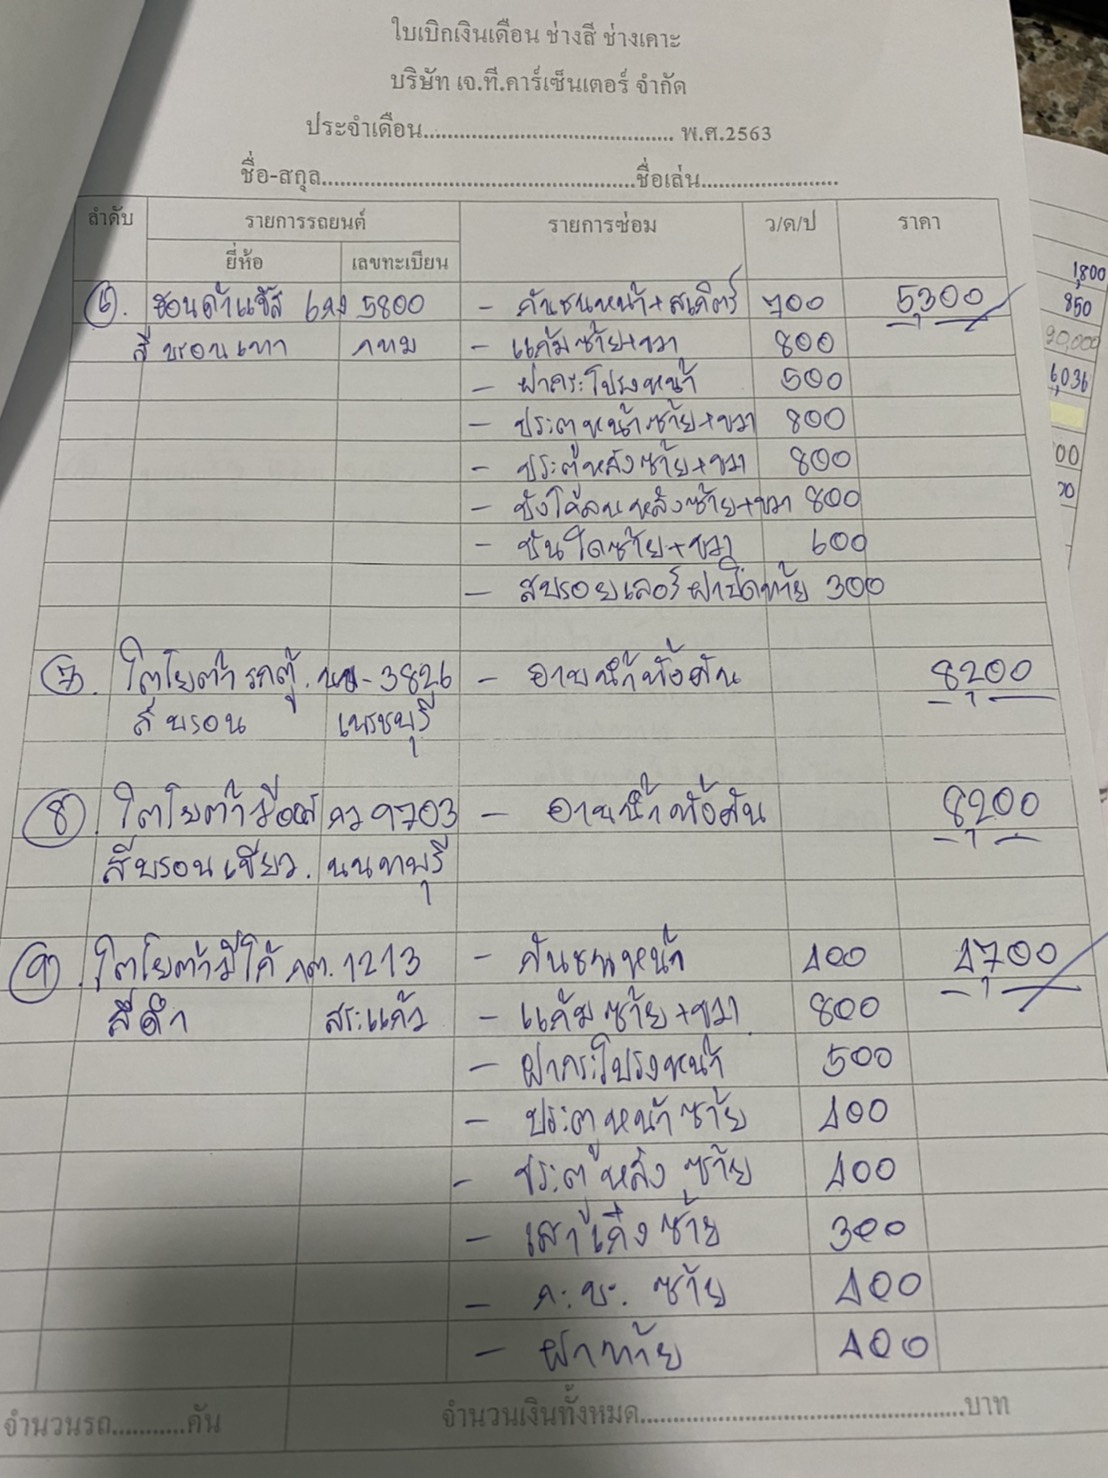 ใบเบิกเงินเดือน ช่างสี ช่างเคาะ
บริษัท เจ.ที.คาร์เซ็นเตอร์ จำกัด
ประจำเดือน.......................................... พ.ศ.2563
ชื่อ-สกุล....................................................ชื่อเล่น.......................
ลำดับ รายการรถยนต์ รายการซ่อม ว/ด/ป ราคา
ยี่ห้อ เลขทะเบียน
6. ฮอนด้าแจ๊ส 5800 - กันชนหน้า+สเกิตร์ 700 5,300
สีบรอนเทา กทม - แก้มซ้าย+ขวา 800
- ฝากระโปรงหน้า 500
- ประตูหน้าซ้าย+ขวา 800
- ประตูหลังซ้าย+ขวา 800
- บังโคลนหลังซ้าย+ขวา 800
- บันไดซ้าย+ขวา 600
- สปรอยเลอร์ฝาปิดท้าย 300
7. โตโยต้า รถตู้. นข-3826 - อาบน้ำทั้งคัน 8,200
สีบรอน เพรชบุรี
8. โตโยต้าวีออส กว 9703 - อาบน้ำทั้งคัน 8,200
สีบรอนเขียว. นนทบุรี
9. โตโยต้าวีโก้ กต. 1213 - กันชนหน้า 400 4,700
สีดำ สระแก้ว - แก้มซ้าย+ขวา 800
- ฝากระโปรงหน้า 500
- ประตูหน้าซ้าย 400
- ประตูหลังซ้าย 400
- เสาเก๋งซ้าย 300
- ก.บ. ซ้าย 400
- ฝาท้าย 400
จำนวนรถ............คัน จำนวนเงินทั้งหมด......................................................บาท
1,800
850
20,000
6,036
00